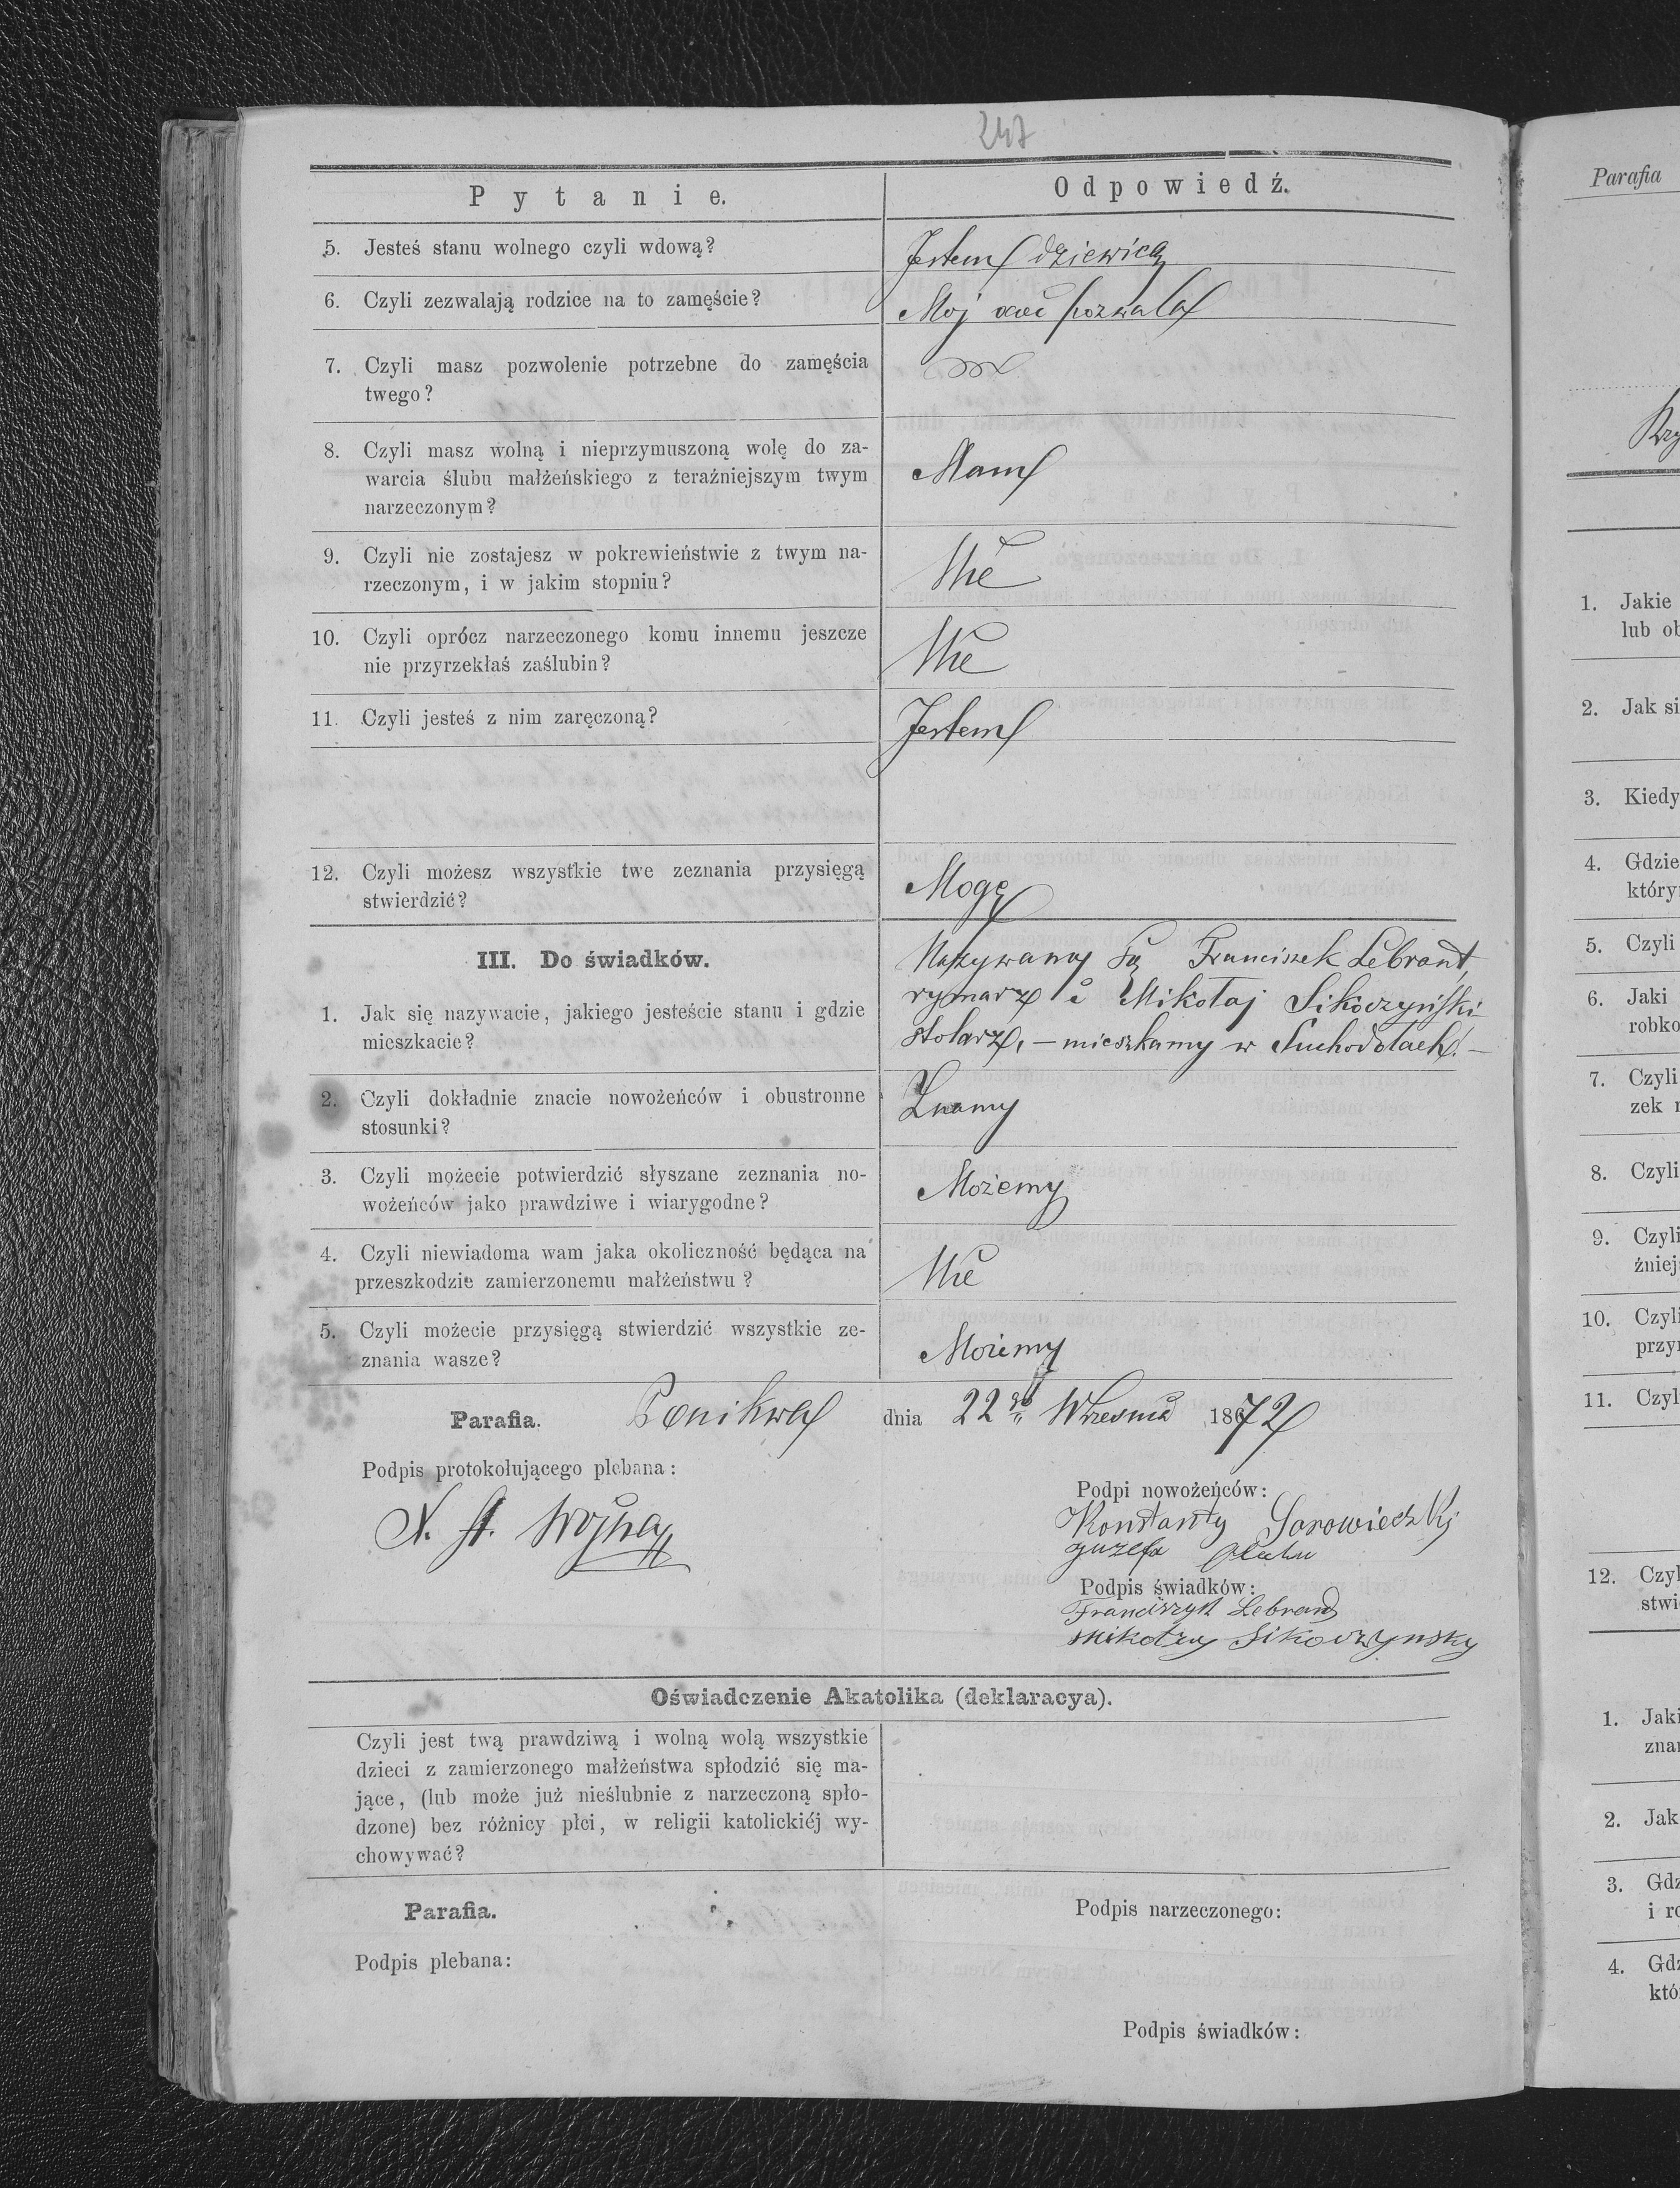 247
Pytanie. Odpowiedź.
5. Jesteś stanu wolnego czyli wdową? Jestem dziewicą
6. Czyli zezwalają rodzice na to zamęście? Moj pozwala
7. Czyli masz pozwolenie potrzebne do zamęścia
twego?
8. Czyli masz wolną i nieprzymuszoną wolę do za-
warcia ślubu małżeńskiego z teraźniejszym twym
narzeczonym? Mam
9. Czyli nie zostajesz w pokrewieństwie z twym na-
rzeczonym, i w jakim stopniu? Nie
10. Czyli oprócz narzeczonego komu innemu jeszcze
nie przyrzekłaś zaślubin? Nie
11. Czyli jesteś z nim zaręczoną? Jestem
12. Czyli możesz wszystkie twe zeznania przysięgą
stwierdzić? Mogę
III. Do świadków.
1. Jak się nazywacie, jakiego jesteście stanu i gdzie
mieszkacie?
Nazywamy się Franciszek Lebrant,
rymarz i Mikołaj Sikoczyński
stolarz, – mieszkamy w Suchodołach. –
2. Czyli dokładnie znacie nowożeńców i obustronne
stosunki? Znamy
3. Czyli możecie potwierdzić słyszane zeznania no-
wożeńców jako prawdziwe i wiarygodne? Możemy
4. Czyli niewiadoma wam jaka okoliczność będąca na
przeszkodzie zamierzonemu małżeństwu? Nie
5. Czyli możecie przysięgą stwierdzić wszystkie ze-
znania wasze? Możemy
Parafia. Ponikwa dnia 22go Wrzesnia 1872
Podpis protokołującego plebana:
X. St. Wojna
Podpi nowożeńców:
Konstanty Sarowieczki
Juzefa
Podpis świadków:
Franciszyk Lebrand
Mikołay Sikoczynsky
Oświadczenie Akatolika (deklaracya).
Czyli jest twą prawdziwą i wolną wolą wszystkie
dzieci z zamierzonego małżeństwa spłodzić się ma-
jące, (lub może już nieślubnie z narzeczoną spło-
dzone) bez różnicy płci, w religii katolickiéj wy-
chowywać?
Parafia.
Podpis plebana:
Podpis narzeczonego:
Podpis świadków:
Parafia
1. Jakie
lub ob
2. Jak si
3. Kiedy
4. Gdzie
który
5. Czyli
6. Jaki
robko
7. Czyli
zek
8. Czyli
9. Czyli
źniej
10. Czyli
przy
11. Czyl
12. Czyl
stwi
1. Jaki
zna
2. Jak
3. Gdz
i ro
4. Gdz
któ